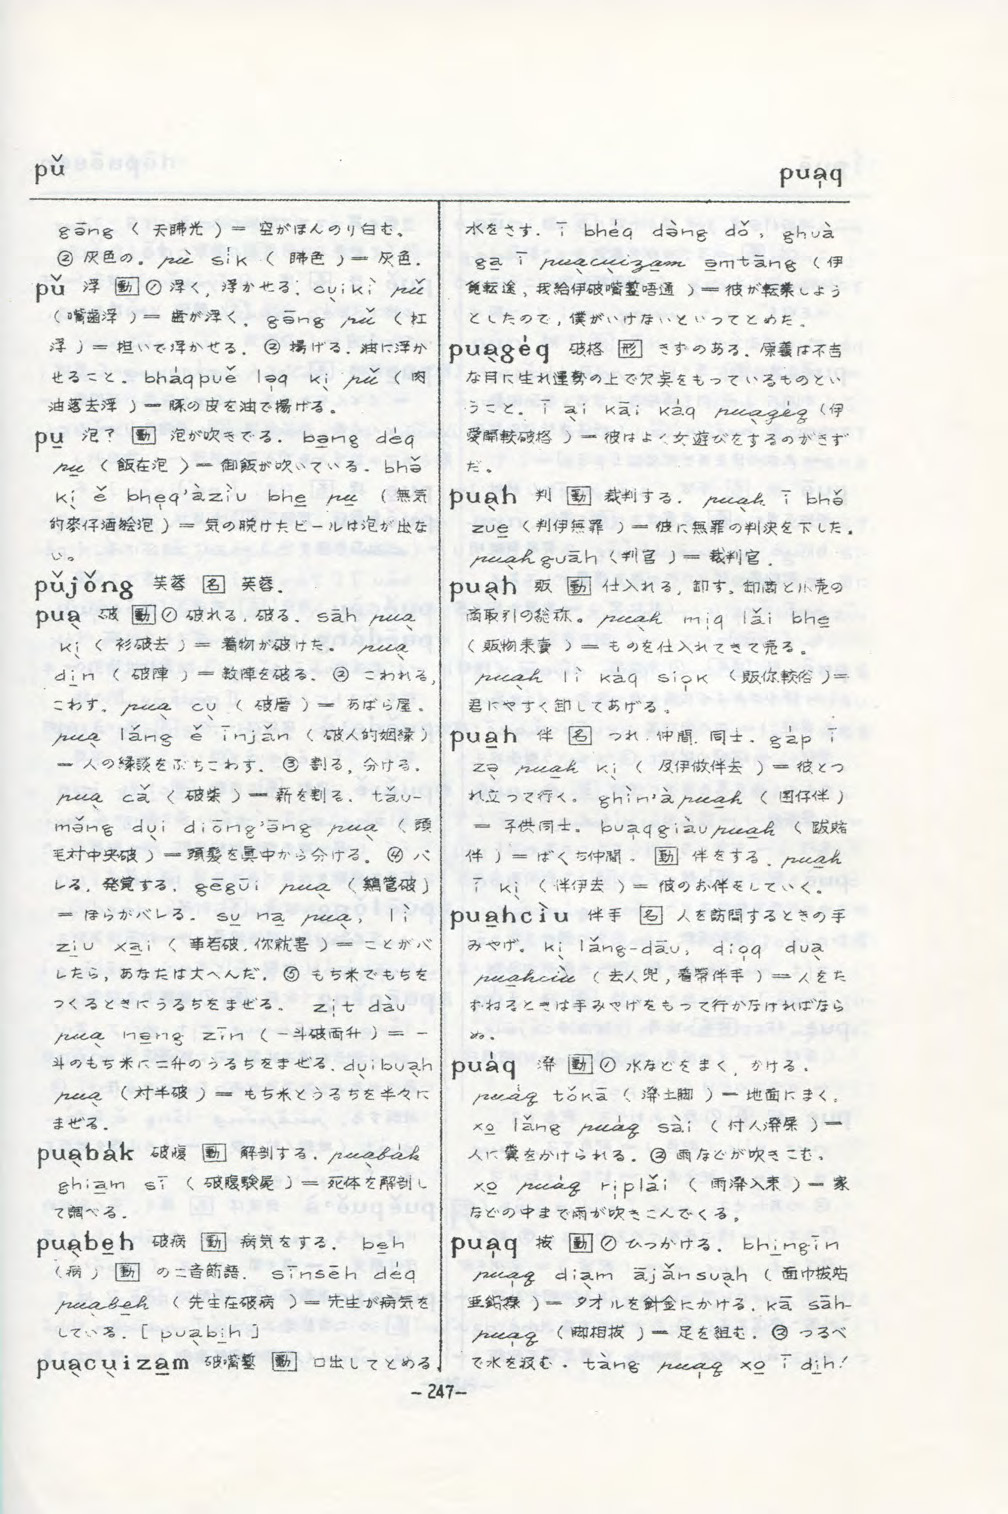 pǔ
pua̍q
gāng ( 天phú光 ) = 空がほんのり白む。
② 灰色の. pù sik ( phú色 ) = 灰色.
pǔ 浮 [動] ① 浮く, 浮かせる. cu̱iki̱ pǔ
( 嘴歯浮 ) = 歯が浮く. gāng pǔ ( 杠
浮 ) = 担いで浮かせる. ② 揚げる. 油に浮か
せること. bháqpuě lə̱q ki̱ pǔ ( 肉
油落去浮 ) = 豚の皮を油で揚げる。
pu̱ 泡? [動] 泡が吹きでる. bə̱ng déq
pu̱ ( 飯在泡 ) = 御飯が吹いている. bhě
ki̱ ě bhe̱q'àziu bhe̱ pu̱ ( 無気
的麥仔酒袂泡 ) = 気の脱けたビールは泡が出な
い。
pǔjǒng 芙蓉 [名] 芙蓉.
pua̱ 破 [動] ① 破れる. 破る. sāh pua̱
ki̱ ( 衫破去 ) = 着物が破けた. pua̱
di̱n ( 破陣 ) = 敵陣を破る. ② こわれる,
こわす. pua̱ cu̱ ( 破厝 ) = あばら屋.
pua̱ láng ě īnjǎn ( 破人的姻縁 )
= 人の縁談をぶちこわす. ③ 割る, 分ける.
pua̱ cǎ ( 破柴 ) = 薪を割る. tǎu-
měng du̱i diōng'āng pua̱ ( 頭
毛対中央破 ) = 頭髪を真中から分ける. ④ バ
レる, 発覚する. gēgūi pua̱ ( 鶏胿破 )
= ほらがバレる. su̱ na̱ pua̱, lì
ziu xa̱i ( 事若破, 你就害 ) = ことがバ
レたら, あなたは大へんだ. ⑤ もち米でもちを
つくるときにうるちをまぜる. zi̱t dàu
pua̱ ne̱ng zīn ( 一斗破両升 ) = 一
斗のもち米に二升のうるちをまぜる. du̱ibua̱h
pua̱ ( 対半破 ) = もち米とうるちを半々に
まぜる.
pua̱bák 破腹 [動] 解剖する. pua̱bák
ghia̱m sī ( 破腹験屍 ) = 死体を解剖し
て調べる.
pua̱be̱h 破病 [動] 病気をする. be̱h
( 病 ) [動] の二音節語. sīnsēh déq
pua̱be̱h ( 先生在破病 ) = 先生が病気を
している. [ pua̱bi̱h ]
pua̱cu̱iza̱m 破嘴鏨 [動] 口出してとめる,
水をさす. ī bhéq də̀ng dǒ, ghuà
ga̱ ī pua̱cu̱iza̱m əmtāng ( 伊
卜転途, 我給伊破嘴鏨唔通 ) = 彼が転業しよう
としたので, 僕がいけないといってとめた.
pua̱géq 破格 [形] きずのある. 原義は不吉
な日に生れ運勢の上で欠点をもっているものとい
うこと. ī a̱i kāi káq pua̱géq ( 伊
愛開較破格 ) = 彼はよく女遊びをするのがきず
だ.
pua̱h 判 [動] 裁判する. pua̱h ī bhě
zue̱ ( 判伊無罪 ) = 彼に無罪の判決を下した.
pua̱hguāh ( 判官 ) = 裁判官.
pua̱h 販 [動] 仕入れる, 卸す. 卸商と小売の
商取引の総称. pua̱h mi̱q lǎi bhe̱
( 販物来賣 ) = ものを仕入れてきて売る。
pua̱h lì káq sio̱k ( 販你較俗 ) =
君にやすく卸してあげる。
pua̱h 伴 [名] つれ. 仲間. 同士. gáp ī
zə̱ pua̱h ki̱ ( 及伊做伴去 ) = 彼とつ
れ立って行く. ghìn'àpua̱h ( 囝仔伴 )
= 子供同士. bua̱qgiàupua̱h ( 跋賭
伴 ) = ばくち仲間. [動] 伴をする. pua̱h
ī ki̱ ( 伴伊去 ) = 彼のお伴をしていく.
pua̱hciu 伴手 [名] 人を訪問するときの手
みやげ. ki̱ lǎng-dāu, dio̱q dua̱
pua̱hciu ( 去人兜, 着帯伴手 ) = 人をた
ずねるときは手みやげをもって行かなければなら
ぬ.
puáq 潑 [動] ① 水などをまく, かける.
puáq tǒkā ( 潑土脚 ) = 地面にまく.
xo̱ lǎng puáq sài ( 付人潑屎 ) =
人に糞をかけられる. ② 雨などが吹きこむ.
xo̱ puáq ri̱plǎi ( 雨潑入来 ) = 家
などの中まで雨が吹きこんでくる。
pua̱q 拔 [動] ① ひっかける. bhi̱ngīn
pua̱q diàm ājǎnsua̱h ( 面巾拔站
亜鉛線 ) = タオルを針金にかける. kā sāh-
pua̱q ( 脚相拔 ) = 足を組む. ② つるべ
で水を汲む. tàng pua̱q xo̱ ī di̱h!
- 247 -